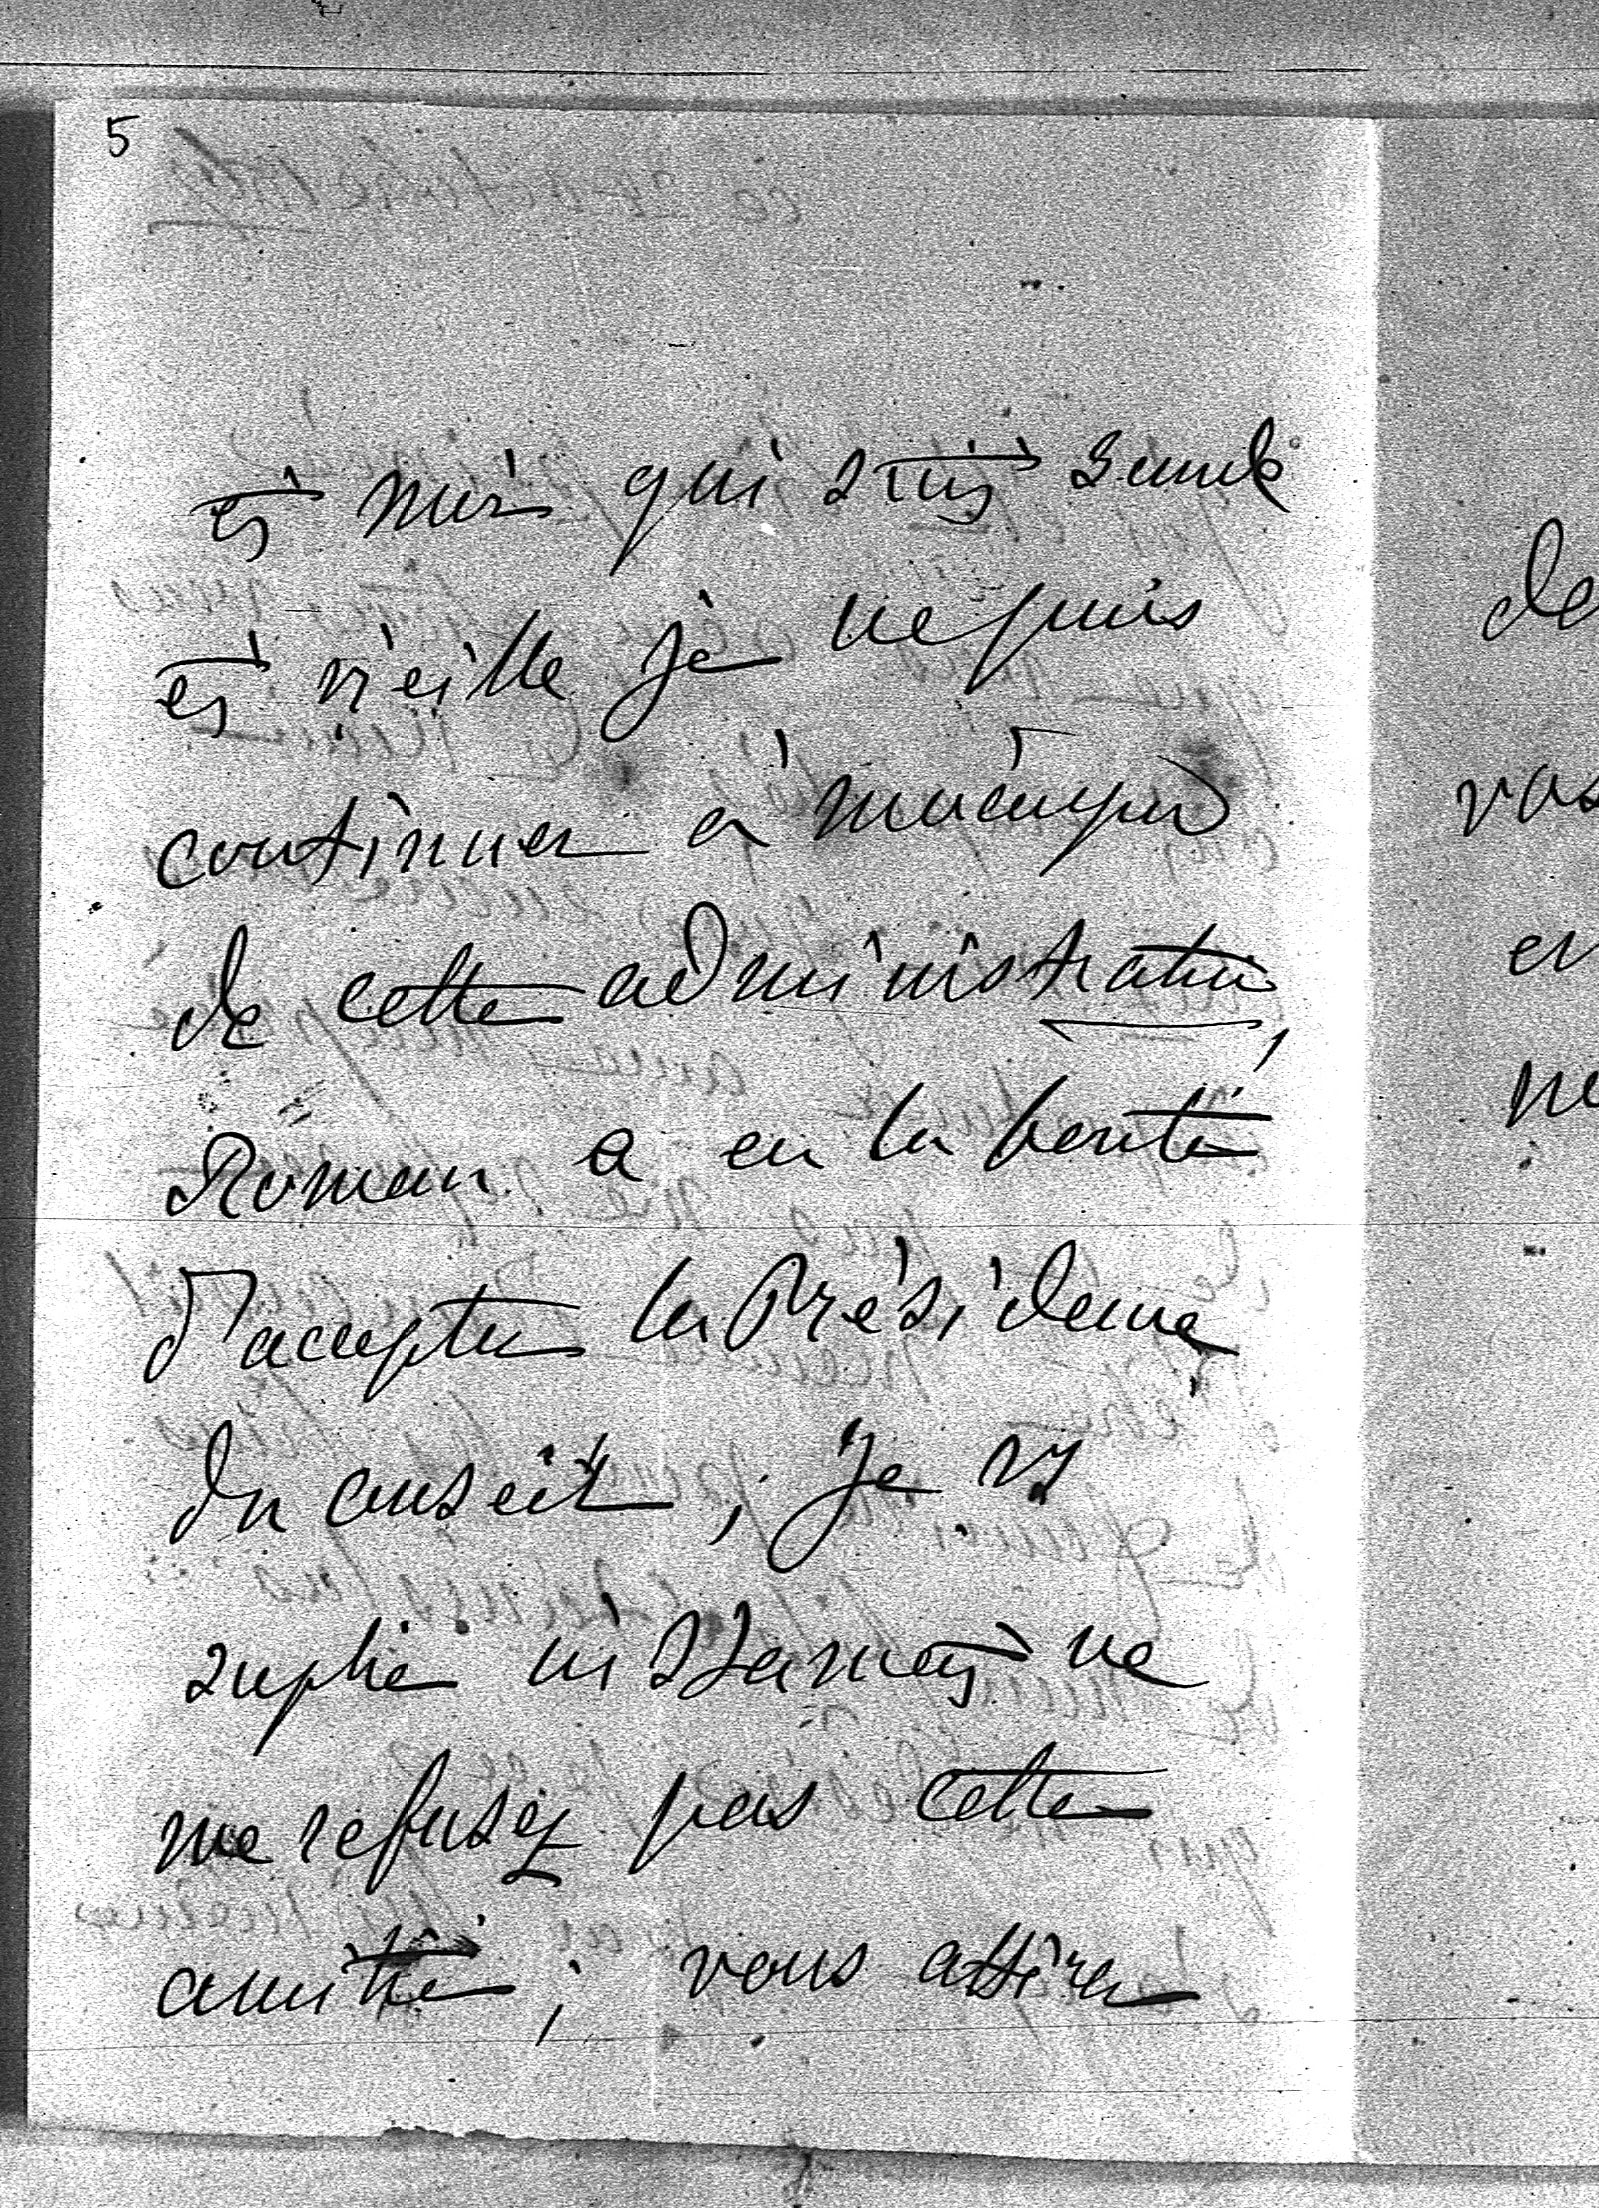 5
et moi qui suis seule
et vieille je ne puis
continuer à m'occuper
de cette administration,
Roman a eu la bonté
d'accepter la Présidence
du conseil, je vs
suplie instament ne
me refusez pas cette
amitié; vous attirer
de
vos
en